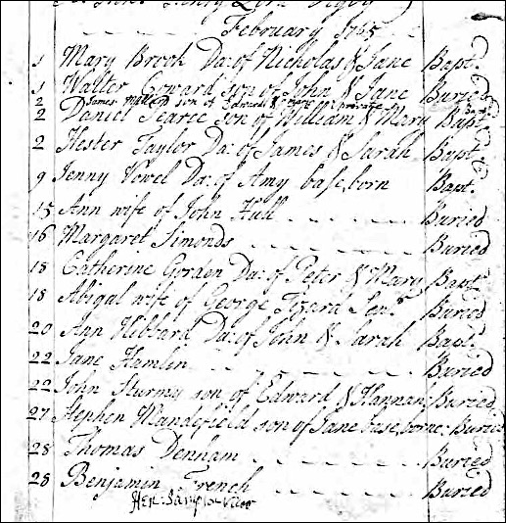 February 1765
1 Mary Brook Da: of Nicholas & Jane Bapt.
1 Walter Coward son of John & Jane Buried
2 James son of Edward & private
2 Daniel Pearce son of William & Mary Bapt.
2 Hester Taylor Da: of James & Sarah Bapt.
9 Jenny Vowel Da: of Amy base born Bapt.
15 Ann wife of John Hull Buried
16 Margaret Simonds Buried
18 Catherine Gorden Da: of Peter & Mary Bapt.
18 Abigal wife of George Senr. Buried
20 Ann Hibbard Da: of John & Sarah Bapt.
22 Jane Hamlen Buried
22 John Sturmy son of Edward & Hannah Buried
27 Stephen Mandefield son of Jane base borne Buried
28 Thomas Denham Buried
28 Benjamin French Buried